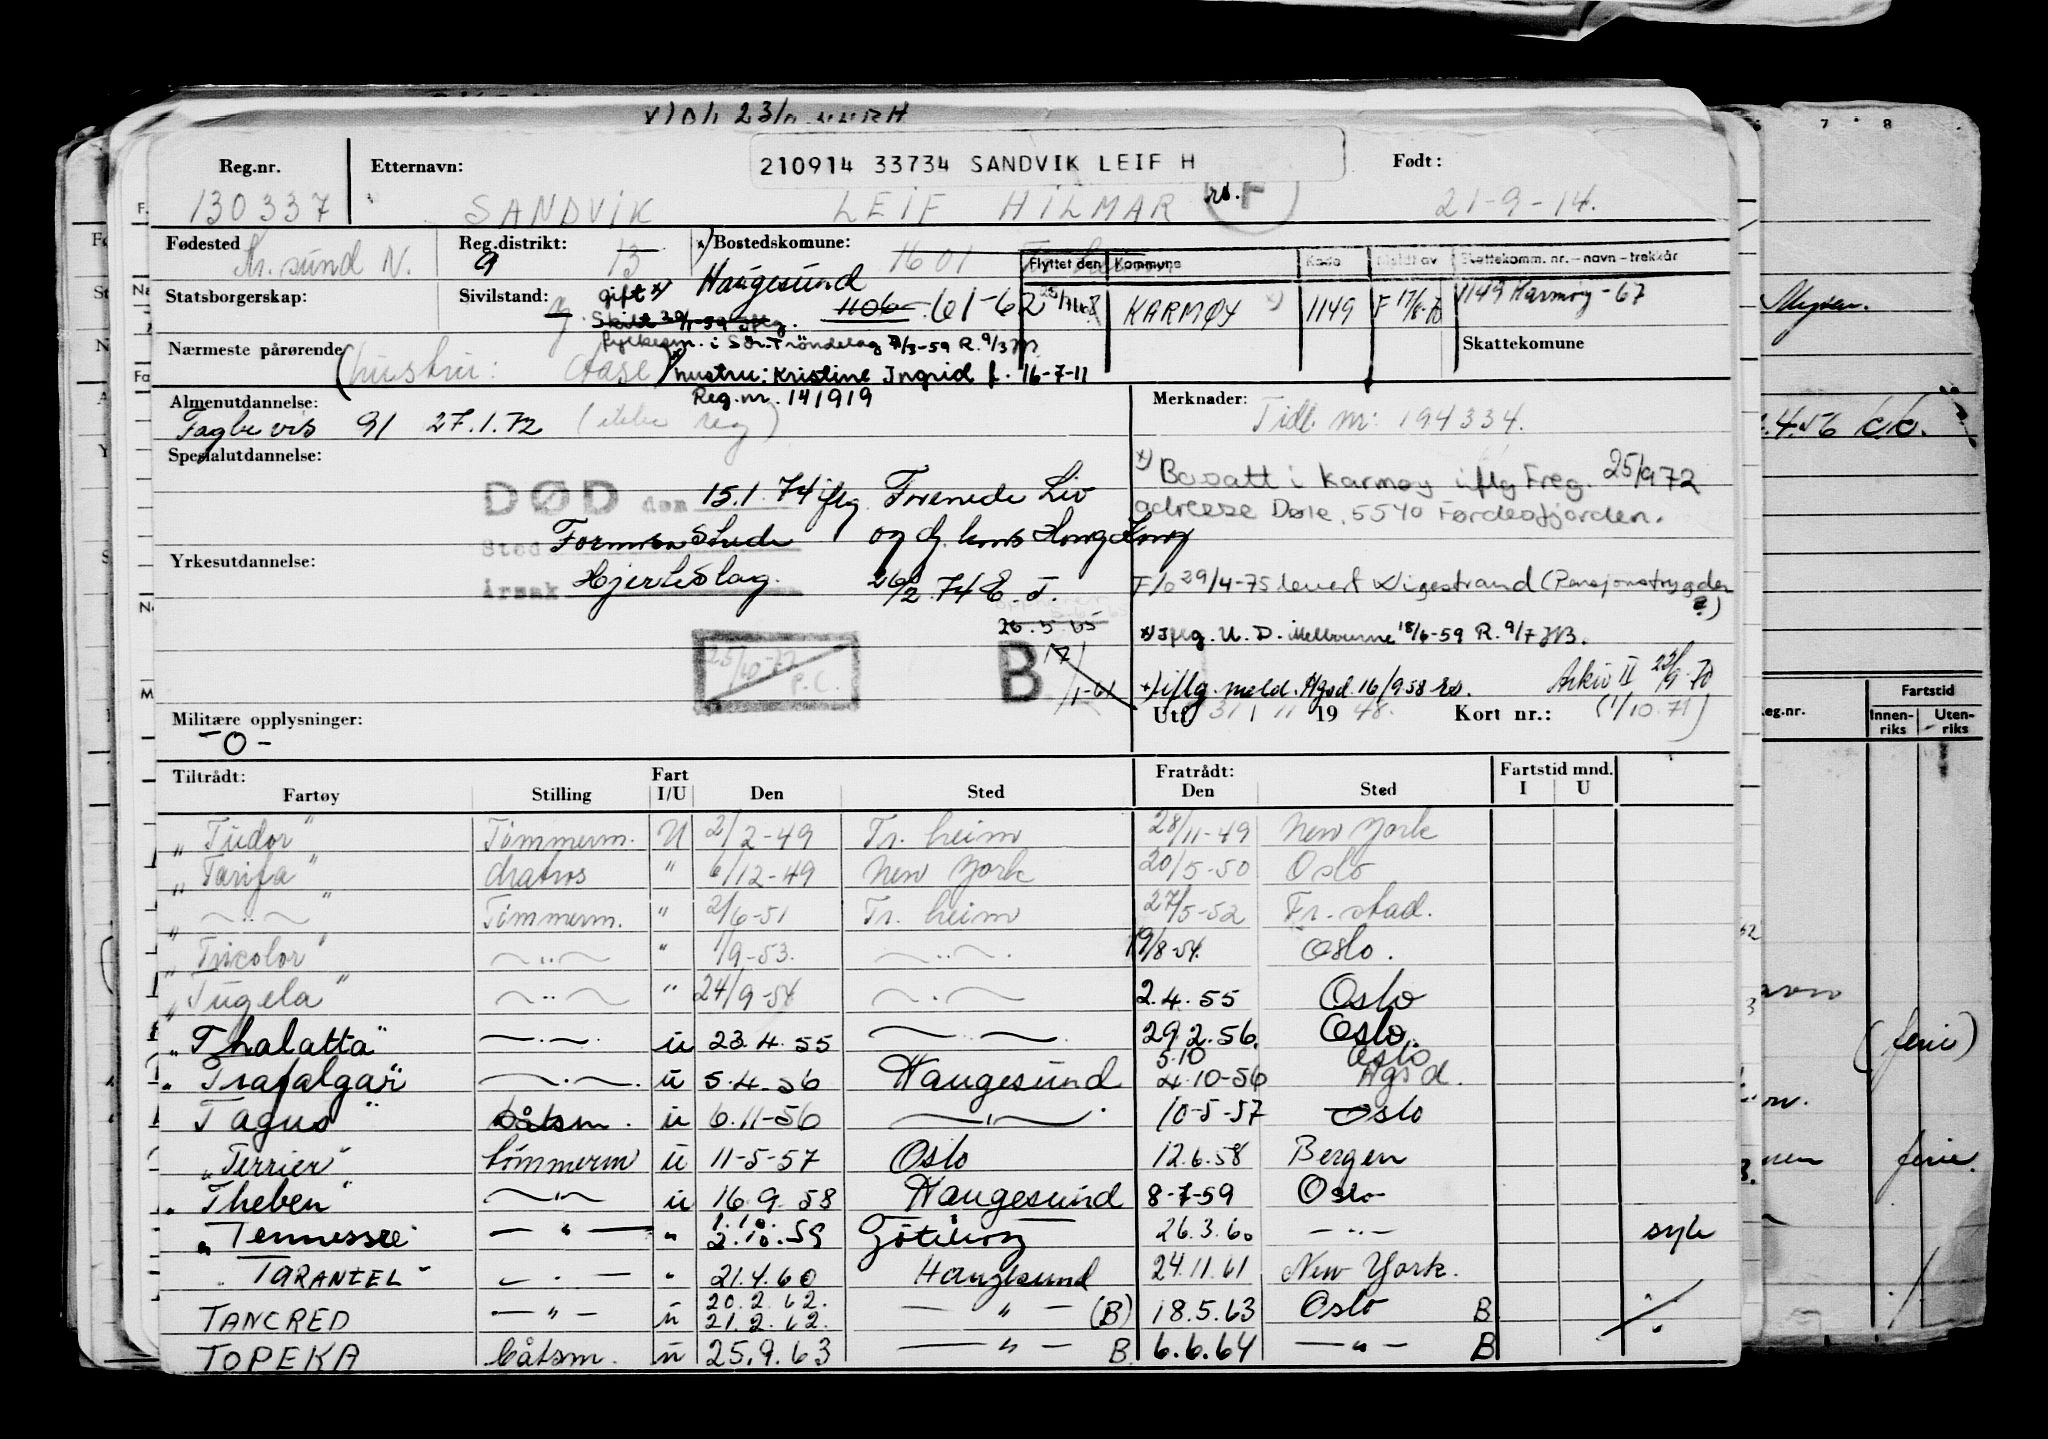 210914 33734 SANDVIK LEIF H
Reg.nr. Etternavn: Født:
130337 SANDVIK LEIF HILMAR rs. F 21-9-14.
Fødested Kr.sund N. Reg.distrikt: 13 9 x) Bostedskomune: 1601
Haugesund 1106 - 61-62
Flyttet den Kommune Kode Meldt av Skattekomm. nr. - navn - trekkår
KARMØY x) 1149 F 17/8-70 1149 Karmøy - 67
Statsborgerskap: Sivilstand: g. gift x)
Skilt 30/1-59 iflg.
fylkesm. i Sør-Trøndelag 7/3-59 R. 9/3 JB.
Skattekomune
Nærmeste pårørende (hustru: Aase) x) hustru: Kristine Ingrid f. 16-7-11
Reg.nr. 141919
Almenutdannelse:
Fagbevis 91 27.1.72 (ikke reg)
Merknader: Tidl. nr: 194334.
Spesialutdannelse:
x) Bosatt i Karmøy iflg Freg. 25/9 72
adresse Døle, 5540 Førdesfjorden.
DØD den 15.1.74 iflg. Forenede Liv
Sted Formosa Stredet og g. kons Hong Kong
Yrkesutdannelse:
Årsak Hjerteslag. 26/2.74 E.T.
F/o 29/4-75 levert Wigestrand (Pensjonstrygden ?)
26.5.65
x) Iflg. U.D. Melbourne 18/6-59 R. 9/7 JB.
25/10-77 P.C.
B 17/1-61
+) iflg. meld. Hgsd. 16/9 58 rs. Arkiv II 22/9-70
Militære opplysninger:
-0-
Utf 31/11 1948. Kort nr.: (1/10.71)
Tiltrådt: Fart Fratrådt: Fartstid mnd.
Fartøy Stilling I/U Den Sted Den Sted I U
„Tudor" Tømmerm. U 2/2-49 Tr.heim 28/11-49 New York
„Tarifa" Matros " 6/12-49 New York 20/5-50 Oslo
„ —„— " Tømmerm. " 2/6-51 Tr.heim 27/5-52 Fr.stad.
„Tricolor" —„— " 1/9-53. —„—. 19/8-54. Oslo.
„Tugela" —„— " 24/9-54 —„— 2.4.55 Oslo
„Thalatta" —„— u 23.4.55 —„— 29.2.56. Oslo.
5.10 Oslo
„Trafalgar" —„— u 5.4.56 Haugesund 4.10-56 Hgsd.
„Tagus" båtsm. u 6.11-56 —„— 10-5-57 Oslo
„Terrier" tømmerm u 11-5-57 Oslo 12.6.58 Bergen
„Theben" —„— u 16.9.58 Haugesund 8-7-59 Oslo
1.10.
„Tennessee —„— " 2.10.59 Göteborg 26.3.60 —„— syk
„TARANTEL" —„— " 21.4.60 Haugesund 24.11.61 New York.
20.2.62.
TANCRED —„— u 21.2.62. —„— (B) 18.5.63 Oslo B
TOPEKA båtsm. u 25.9.63 —„— B. 6.6.64 —„— B
7 8
Mysen.
.4.56
Fartstid
eg.nr. Innen-riks Uten-riks
(ferie)
ferie.